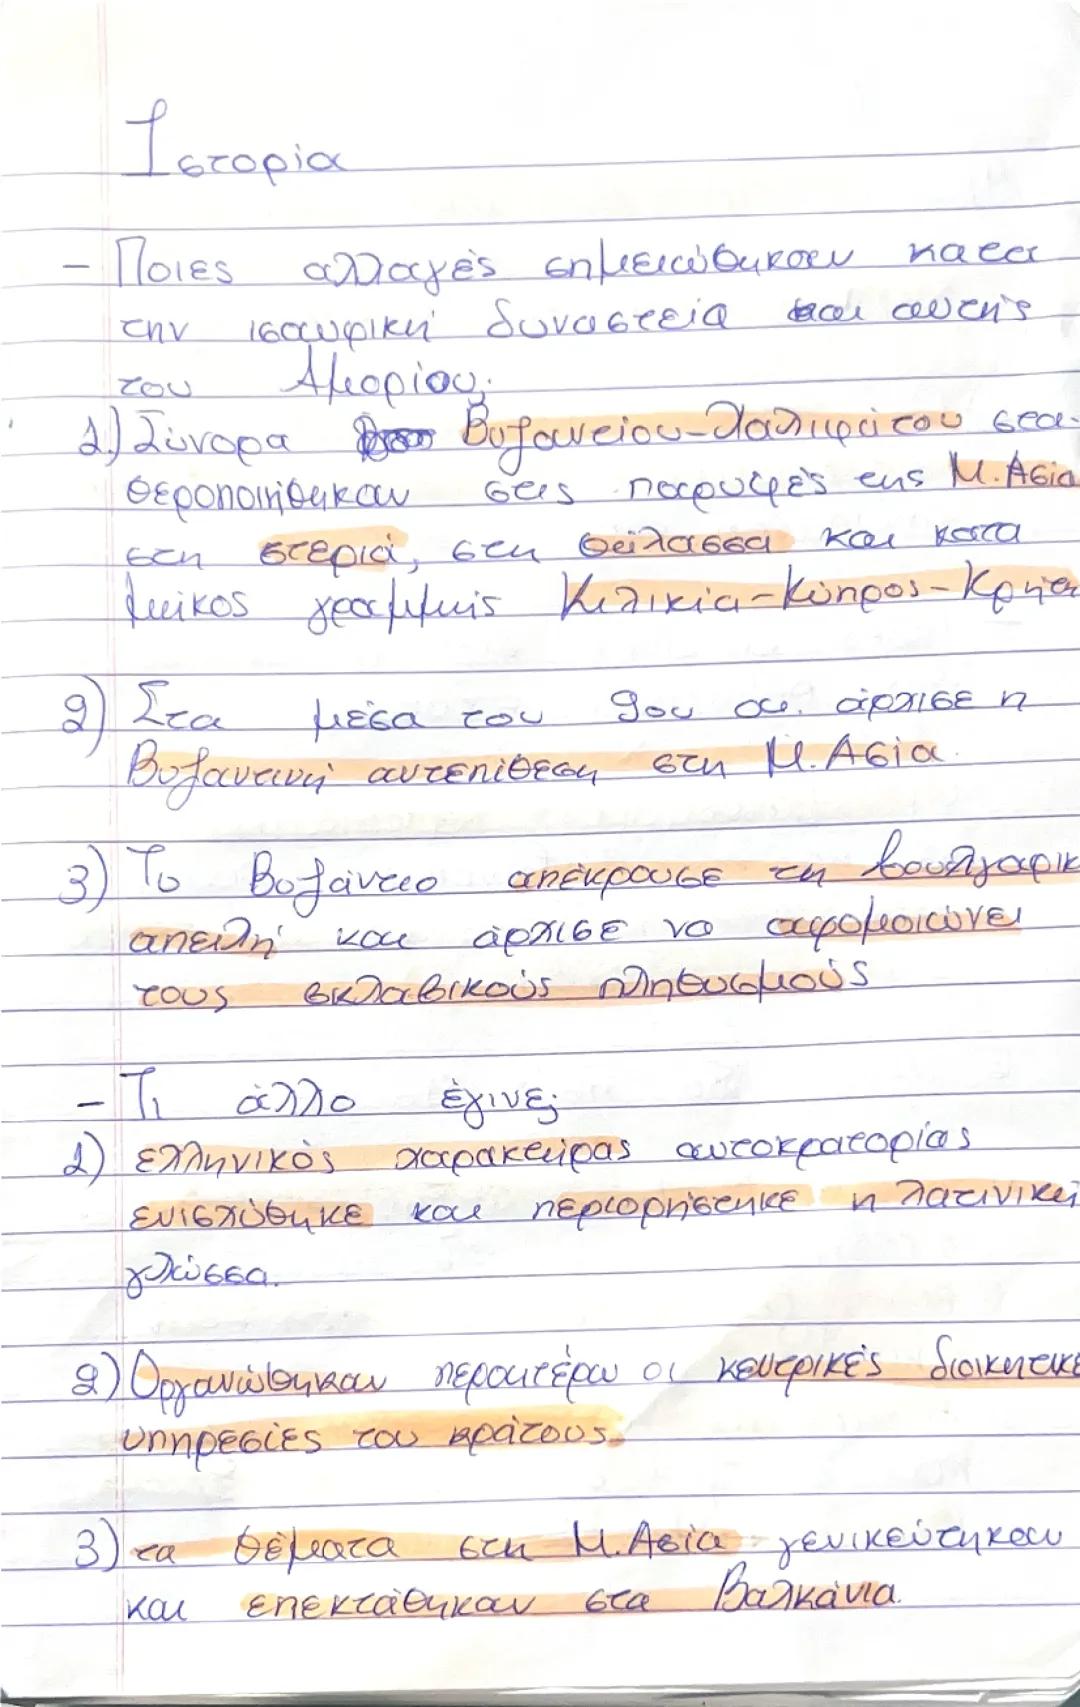 Ιστορία
- Ποιες αλλαγές σημειώθηκαν κατα
την ισαυρική δυναστεία και αυτής
του Αμορίου;
1.) Σύνορα Βυζαντίου-Χαλιφάτου στα-
θεροποιήθηκαν στις παρυφές της Μ. Ασία
στη στεριά, στη θάλασσα και κατα
μήκος γραμμής Κιλικία-Κύπρος-Κρήτη
2) Στα μέσα του 9ου αι. άρχισε η
Βυζαντινή αντεπίθεση στη Μ. Ασία.
3) Το Βυζάντιο απέκρουσε τη βουλγαρικ
απειλή και άρχισε να αφομοιώνει
τους σκλαβικούς πληθυσμούς
- Τι άλλο έγινε;
1) ελληνικός χαρακτήρας αυτοκρατορίας
ενισχύθηκε και περιορήστηκε η λατινική
γλώσσα.
2) Οργανώθηκαν περαιτέρω οι κεντρικές διοικητικέ
υπηρεσίες του κράτους.
3) τα θέματα στη Μ. Ασία γενικεύτηκαν
και επεκτάθηκαν στα Βαλκάνια.